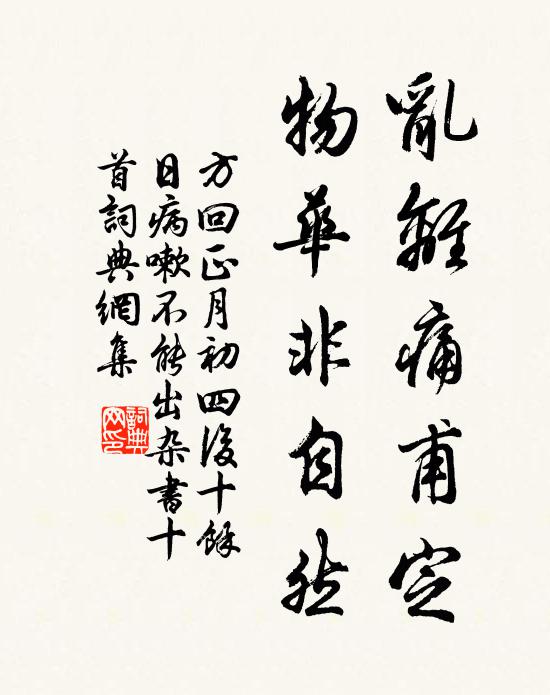 亂離痛甫定
物華非自然
方回正月初四後十餘
日病嗽不能出杂書十
首詞典網集
詞典
网印